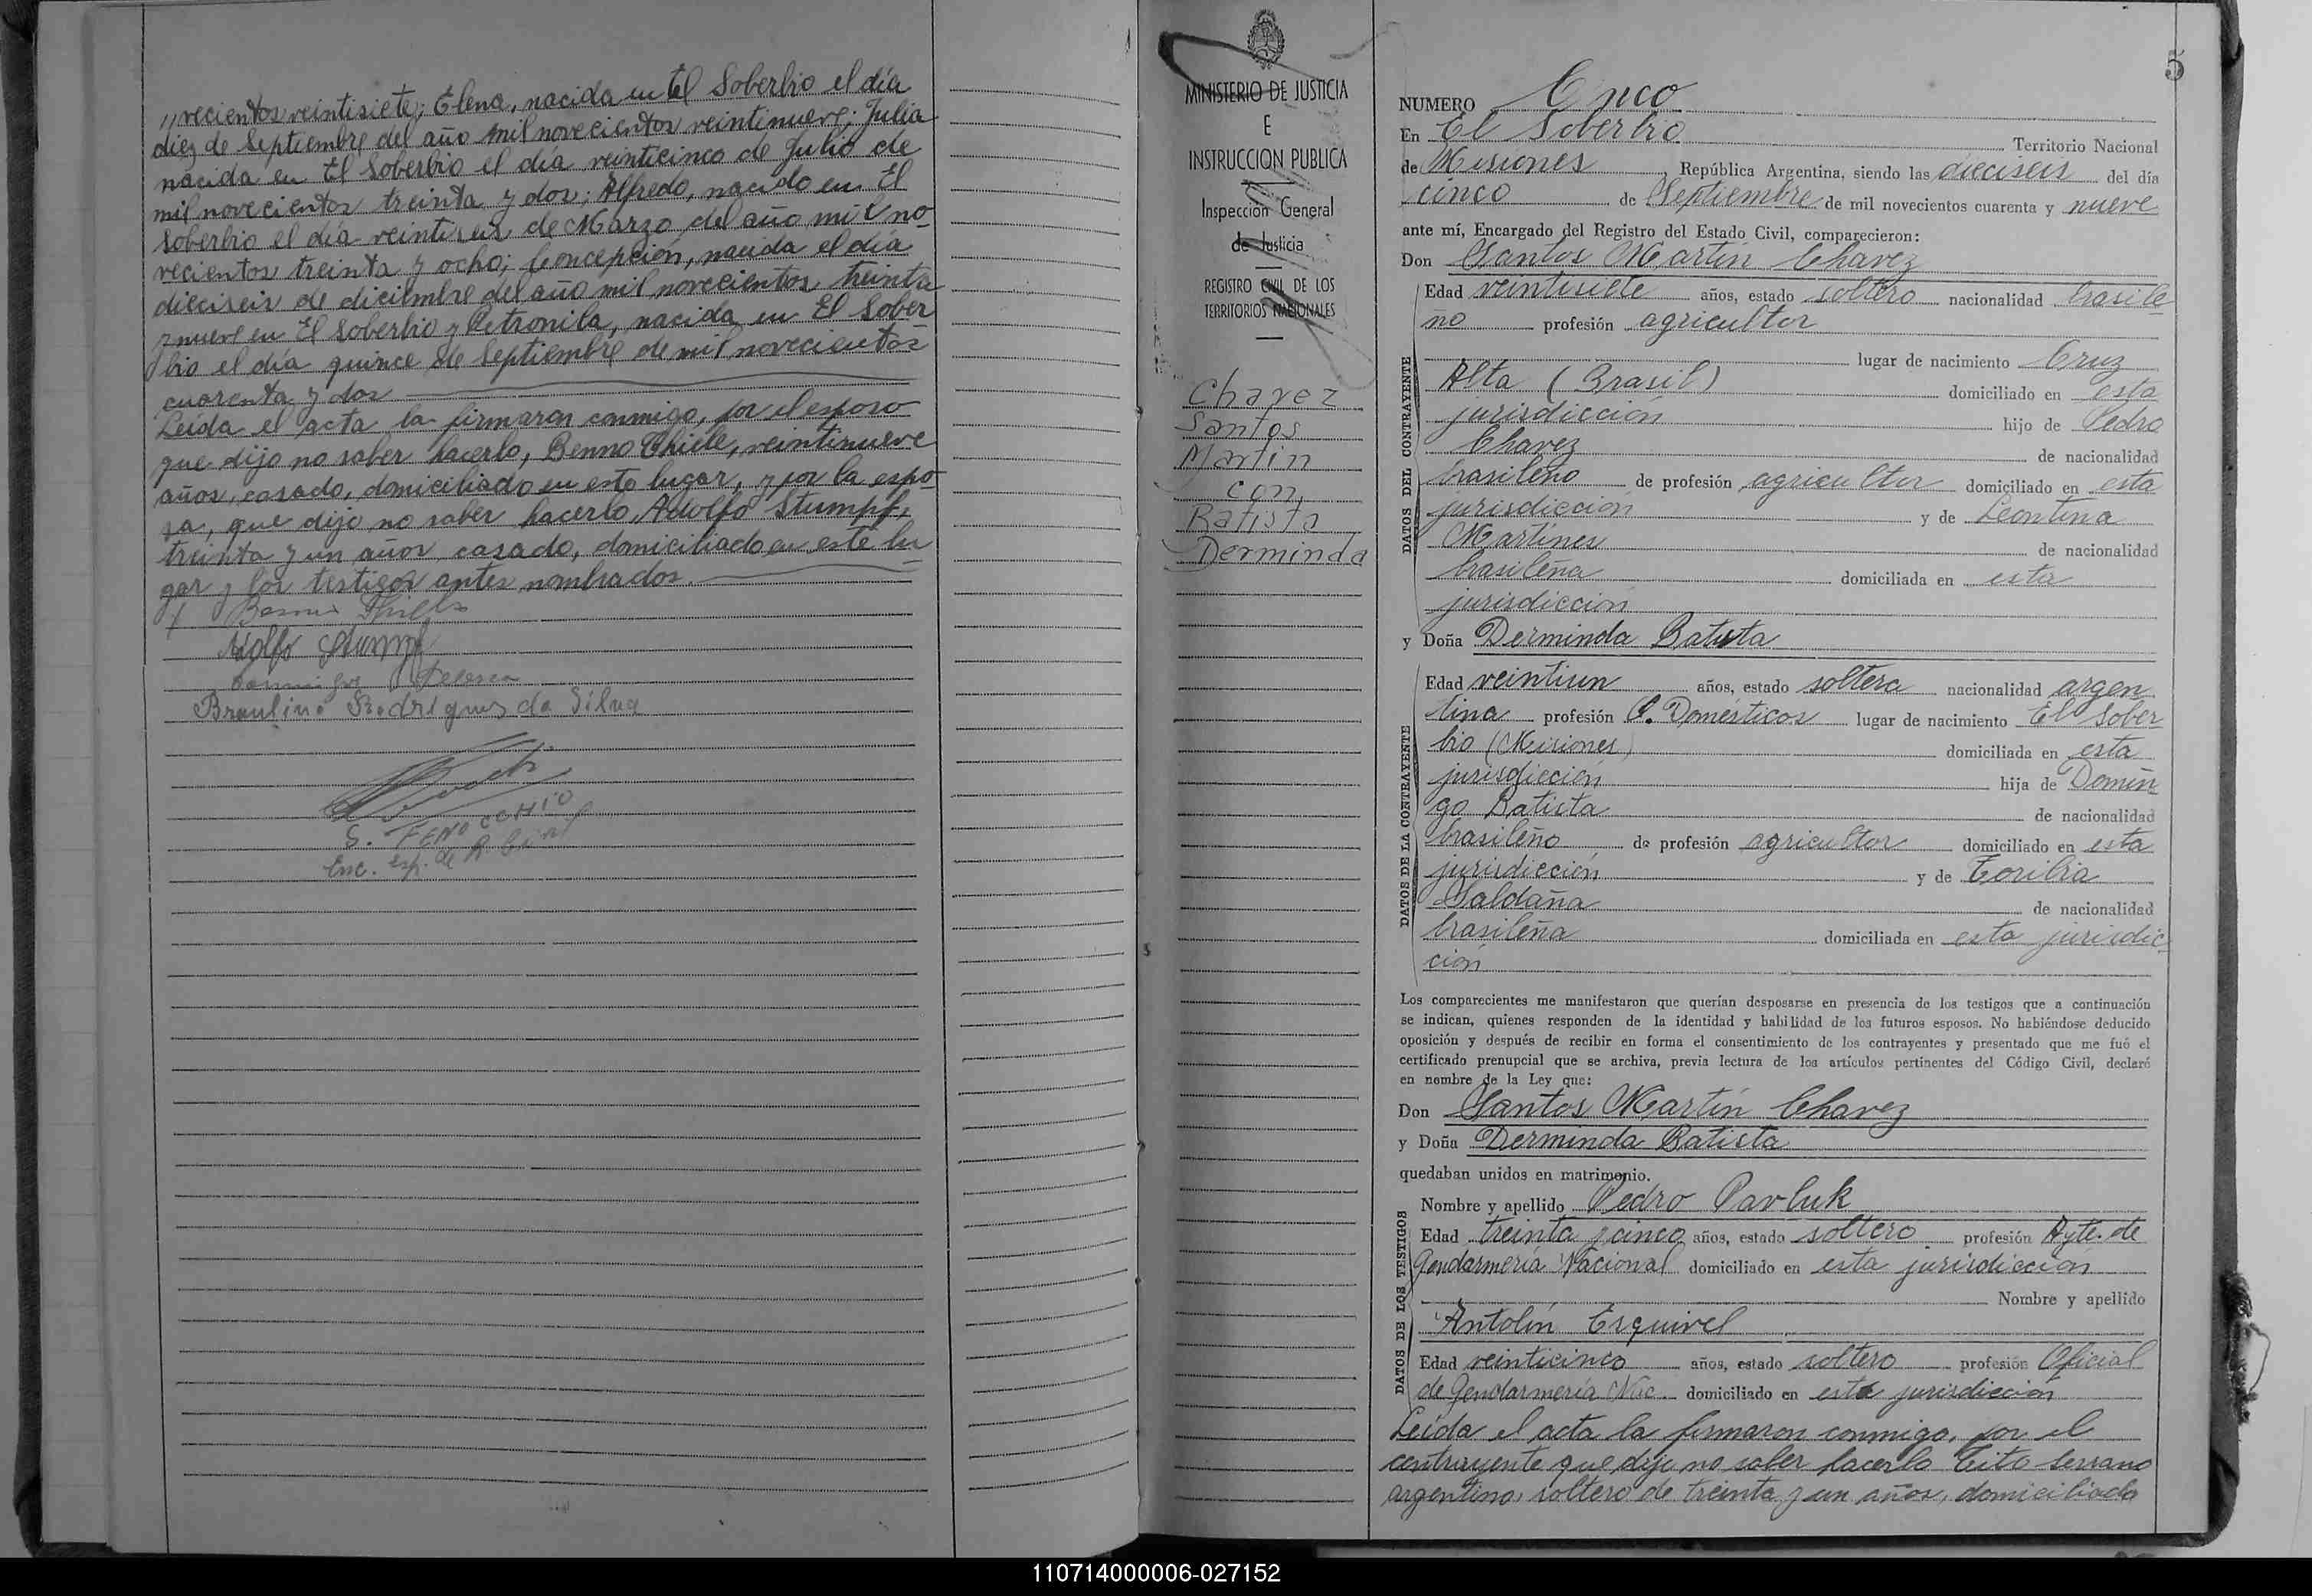 // vecientos veintisiete; Elena, nacida en El Soberbio el día
diez de Septiembre del año mil novecientos veintinueve; Julia
nacida en El Soberbio el día veinticinco de Julio de
mil novecientos treinta y dos; Alfredo, nacido en El
Soberbio el día veintiseis de Marzo del año mil no-
vecientos treinta y ocho; Concepción, nacida el día
dieciseis de diciembre del año mil novecientos treinta
y nueve en El Soberbio y Petronila, nacida en El Sober
bio el día quince de Septiembre de mil novecientos
cuarenta y dos
Leída el acta la firmaron conmigo, por el esposo
que dijo no saber hacerlo, Benno Thiele, veintinueve
años, casado, domiciliado en este lugar, y por la espo-
sa, que dijo no saber hacerlo, Adolfo Stumpf,
treinta y un años casado, domiciliado en este lu
gar y los testigos antes nombrados.
Adolfo Stumpf
Braulino Rodrigues da Silva
S. FENOCCHIO
Enc. esp. de R. Civil
MINISTERIO DE JUSTICIA
E
INSTRUCCION PUBLICA
Inspección General
de Justicia
REGISTRO CIVIL DE LOS
TERRITORIOS NACIONALES
Chavez
Santos
Martin
con
Batista
Derminda
5
NUMERO Cinco
En El Soberbio Territorio Nacional
de Misiones, República Argentina, siendo las dieciseis del día
cinco de Septiembre de mil novecientos cuarenta y nueve
ante mí, Encargado del Registro del Estado Civil, comparecieron:
Don Santos Martín Chavez
DATOS DEL CONTRAYENTE
Edad veintisiete años, estado soltero nacionalidad brasile
ño profesión agricultor
lugar de nacimiento Cruz
Alta (Brasil) domiciliado en esta
jurisdicción hijo de Pedro
Chavez de nacionalidad
brasileño de profesión agricultor domiciliado en esta
jurisdicción y de Leontina
Martines de nacionalidad
brasileña domiciliada en esta
jurisdicción
y Doña Derminda Batista
DATOS DE LA CONTRAYENTE
Edad veintiun años, estado soltera nacionalidad argen
tina profesión Q. Domésticos lugar de nacimiento El Sober
bio (Misiones) domiciliada en esta
jurisdicción hija de Domin
go Batista de nacionalidad
brasileño de profesión agricultor domiciliado en esta
jurisdicción y de Toribia
Saldaña de nacionalidad
brasileña domiciliada en esta jurisdic
ción
Los comparecientes me manifestaron que querían desposarse en presencia de los testigos que a continuación
se indican, quienes responden de la identidad y habilidad de los futuros esposos. No habiéndose deducido
oposición y después de recibir en forma el consentimiento de los contrayentes y presentado que me fué el
certificado prenupcial que se archiva, previa lectura de los artículos pertinentes del Código Civil, declaré
en nombre de la Ley que:
Don Santos Martín Chavez
y Doña Derminda Batista
quedaban unidos en matrimonio.
DATOS DE LOS TESTIGOS
Nombre y apellido Pedro Pavluk
Edad treinta y cinco años, estado soltero profesión Ayte. de
Gendarmería Nacional domiciliado en esta jurisdicción
Nombre y apellido
Antolín Esquivel
Edad veinticinco años, estado soltero profesión Oficial
de Gendarmería Nac. domiciliado en esta jurisdicción
Leída el acta la firmaron conmigo, por el
contrayente que dijo no saber hacerlo Tito Serrano
argentino, soltero de treinta y un años, domiciliado
110714000006-027152